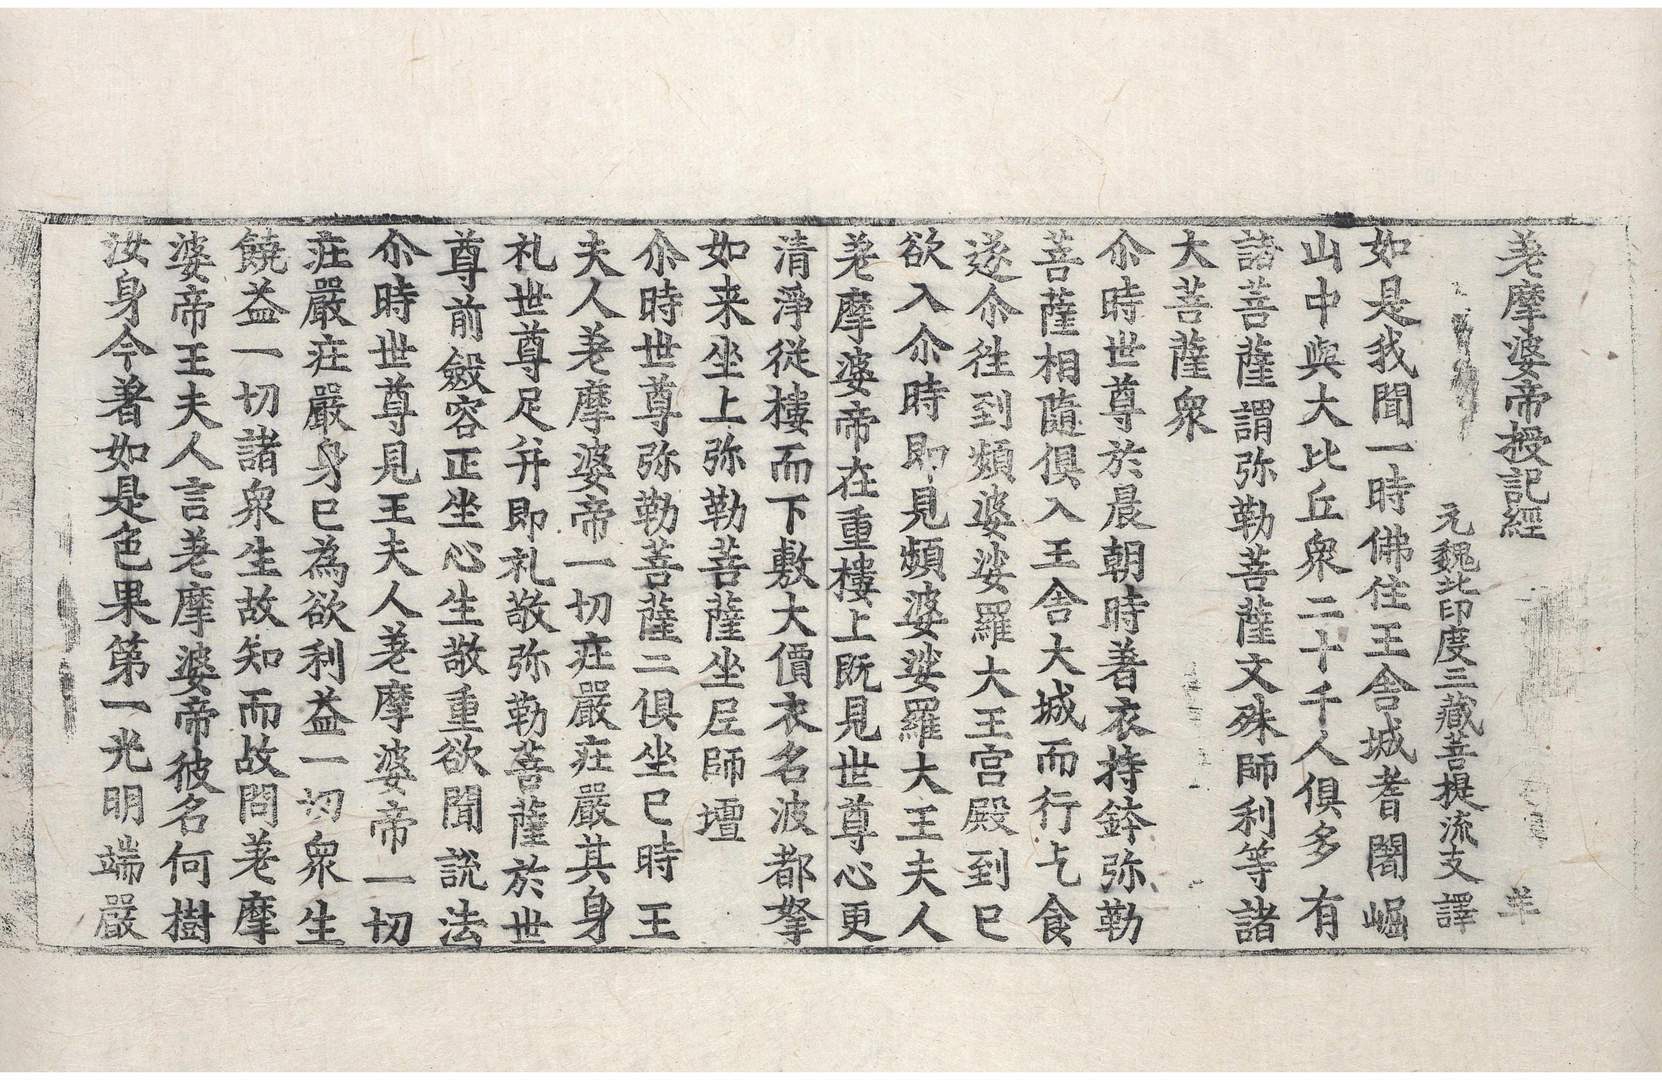 差摩婆帝授記經　羊
元魏北印度三藏菩提流支譯
如是我聞一時佛住王舍城耆闍崛
山中與大比丘衆二十千人俱多有
諸菩薩謂弥勒菩薩文殊師利等諸
大菩薩衆
尒時世尊於晨朝時著衣持鉢弥勒
菩薩相隨俱入王舍大城而行乞食
遂尒往到頻婆娑羅大王宮殿到已
欲入尒時即見頻婆娑羅大王夫人
差摩婆帝在重樓上旣見世尊心更
清淨從樓而下敷大價衣名波都拏
如来坐上弥勒菩薩坐𡰱師壇
尒時世尊弥勒菩薩二俱坐已時王
夫人差摩婆帝一切庄嚴庄嚴其身
礼世尊足幷即礼敬弥勒菩薩於世
尊前斂容正坐心生敬重欲聞說法
尒時世尊見王夫人差摩婆帝一切
庄嚴庄嚴身已為欲利益一切衆生
饒益一切諸衆生故知而故問差摩
婆帝王夫人言差摩婆帝彼名何樹
汝身今著如是色果第一光明端嚴